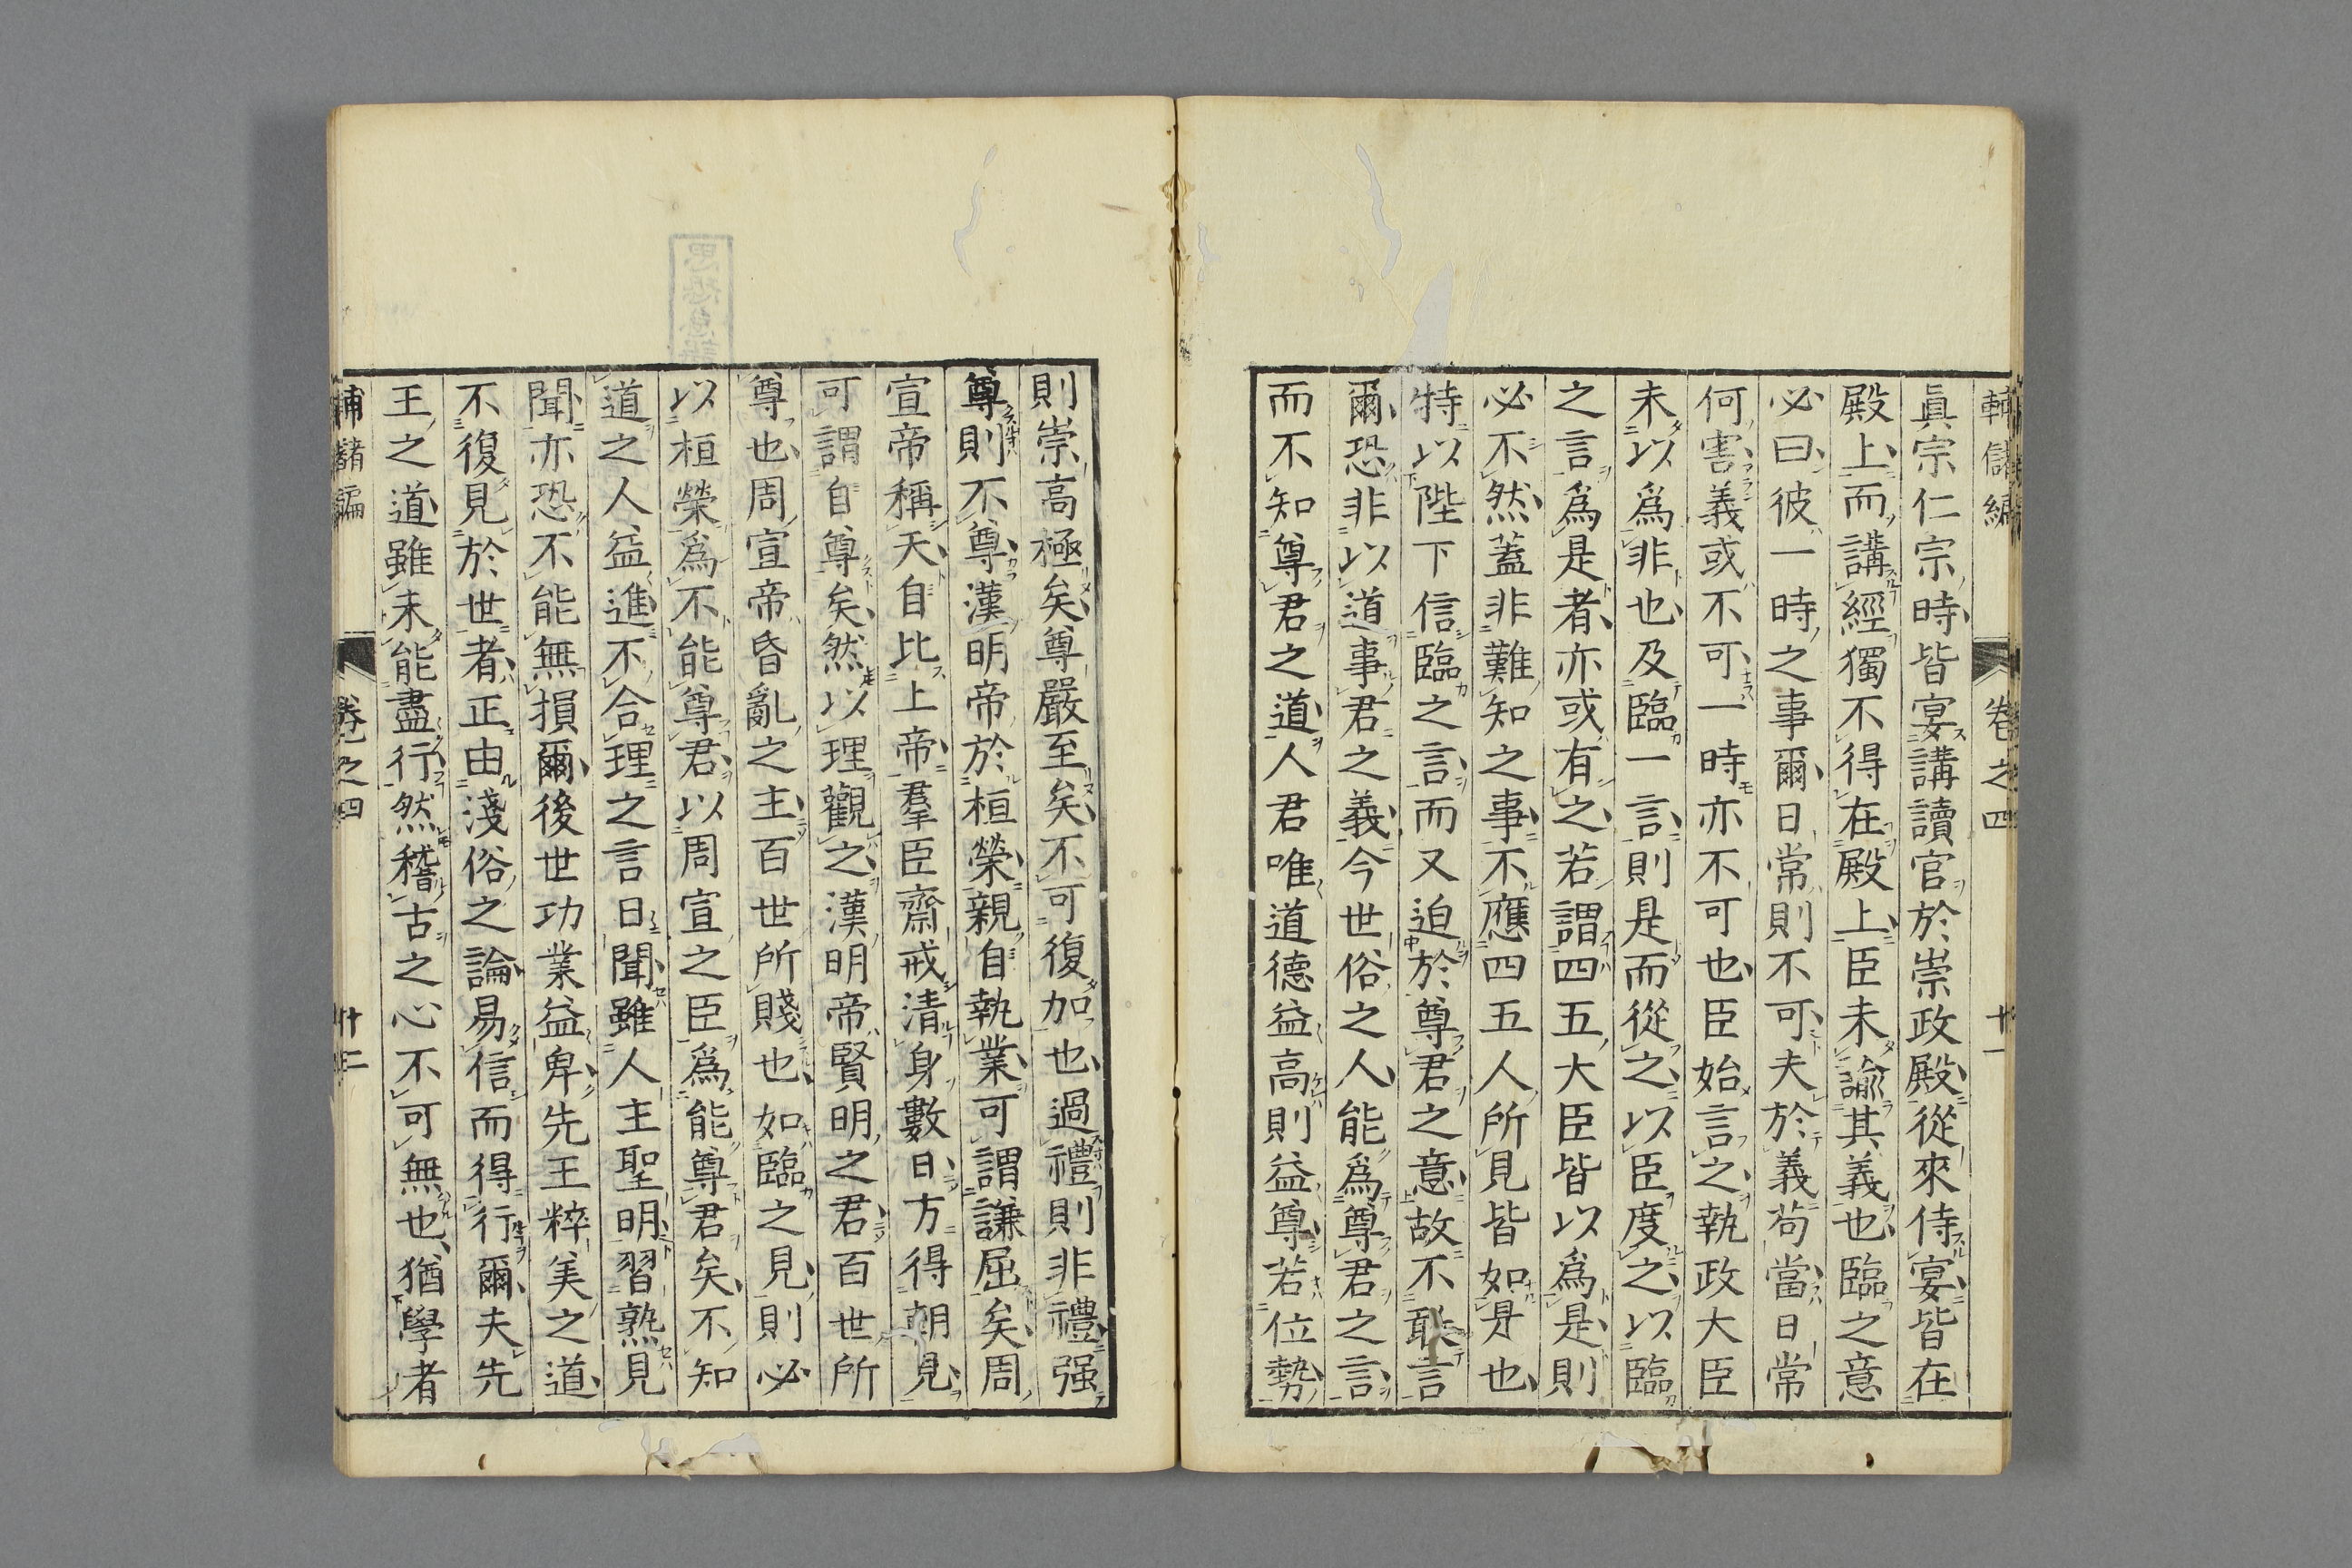 輔儲編 卷之四 十一
眞宗仁宗時皆宴講讀官於崇政殿從來侍宴皆在
殿上而講經獨不得在殿上臣未諭其義也臨之意
必曰彼一時之事爾日常則不可夫於義苟當日常
何害義或不可一時亦不可也臣始言之執政大臣
未以爲非也及臨一言則是而從之以臣度之以臨
之言爲是者亦或有之若謂四五大臣皆以爲是則
必不然蓋非難知之事不應四五人所見皆如是也
特以陛下信臨之言而又迫於尊君之意故不敢言
爾恐非以道事君之義今世俗之人能爲尊君之言
而不知尊君之道人君唯道德益高則益尊若位勢
則崇高極矣尊嚴至矣不可復加也過禮則非禮强
尊則不尊漢明帝於桓榮親自執業可謂謙屈矣周
宣帝稱天自比上帝羣臣齋戒清身數日方得朝見
可謂自尊矣然以理觀之漢明帝賢明之君百世所
尊也周宣帝昏亂之主百世所賤也如臨之見則必
以桓榮爲不能尊君以周宣之臣爲能尊君矣不知
道之人益進不合理之言日聞雖人主聖明習熟見
聞亦恐不能無損爾後世功業益卑先王粹美之道
不復見於世者正由淺俗之論易信而得行爾夫先
王之道雖未能盡行然稽古之心不可無也猶學者
卷之四 十二